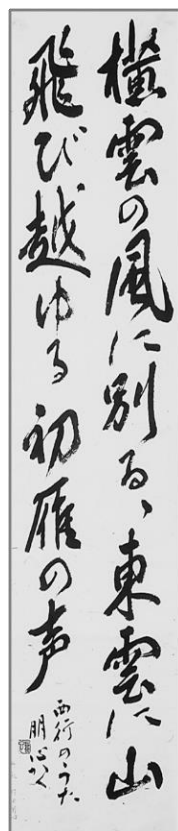 横雲の風に別るゝ東雲に山
飛び越ゆる初雁の声
西行のうた
朋心かく